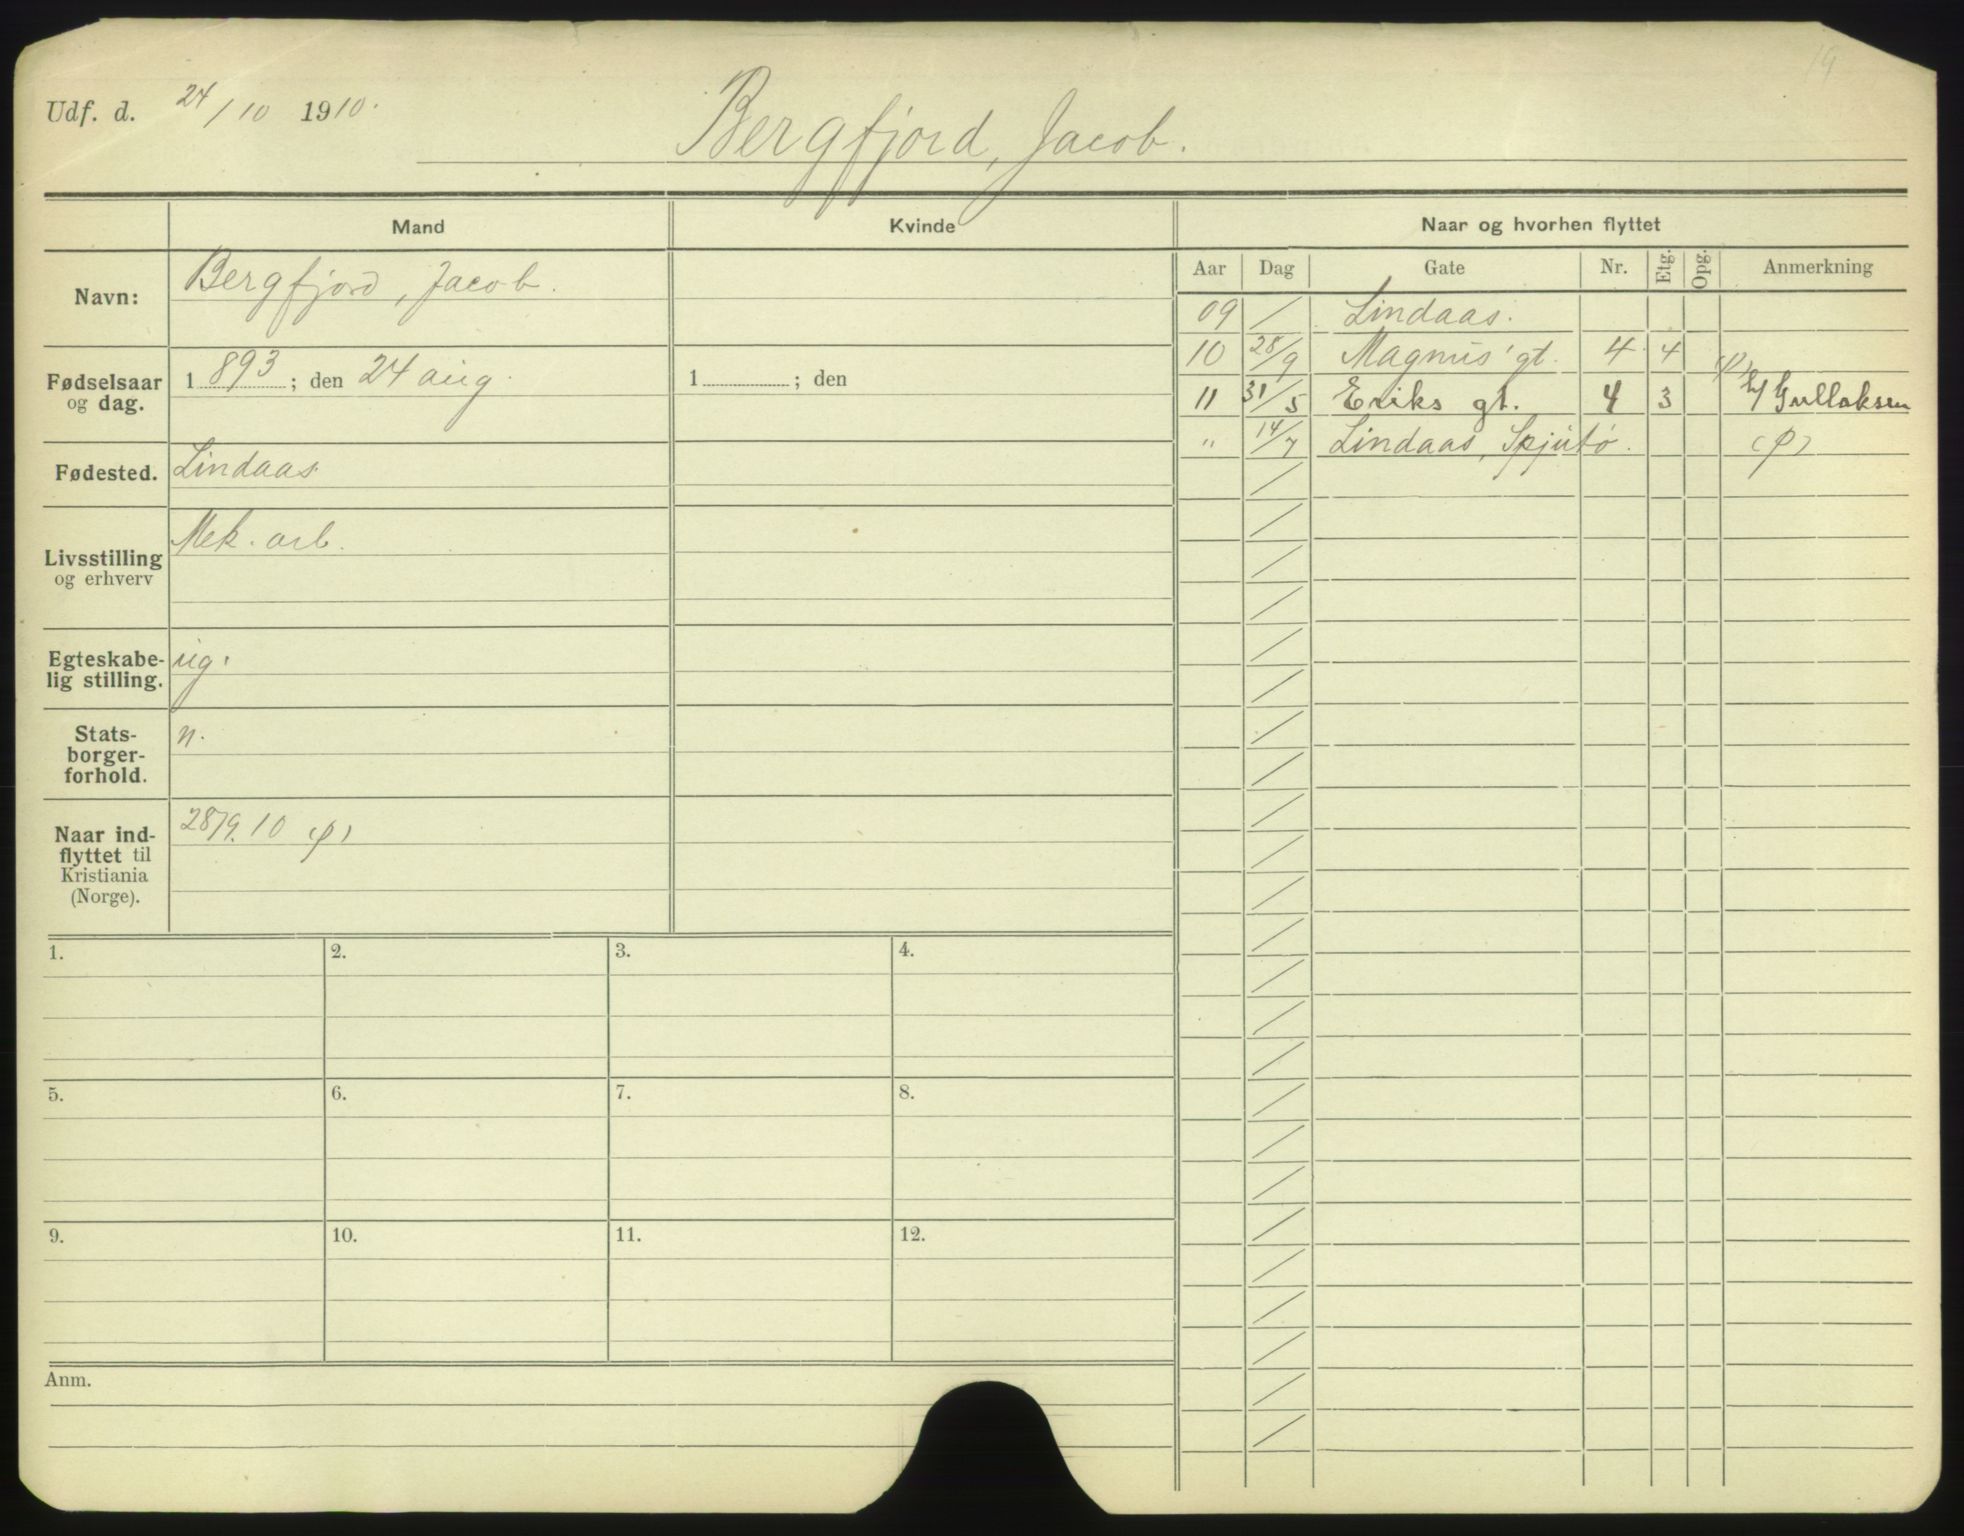 19
Udf. d. 24/10 1910.
Bergfjord, Jacob.
Mand Kvinde Naar og hvorhen flyttet
Aar Dag Gate Nr. Etg. Opg. Anmerkning
Navn: Bergfjord, Jacob.
Fødselsaar og dag. 1893; den 24 aug. 1 ; den
Fødested. Lindaas
Livsstilling og erhverv Mek. arb.
Egteskabe-
lig stilling. ug.
Stats-
borger-
forhold. n.
Naar ind-
flyttet til
Kristiania
(Norge). 28/9. 10 (p)
09 / Lindaas.
10 28/9 Magnus' gt. 4 4 (p)
11 31/5 Eriks gt. 4 3 h/ Gullaksen
" 14/7 Lindaas, Spjutø. (p)
1. 2. 3. 4.
5. 6. 7. 8.
9. 10. 11. 12.
Anm.